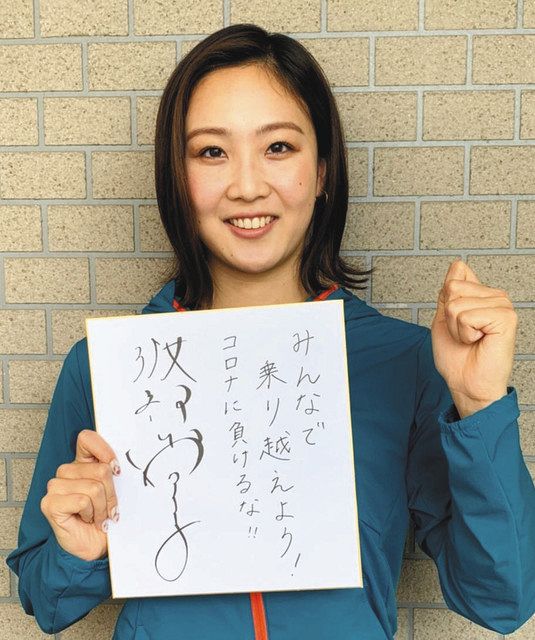 みんなで
乗り越えよう!
コロナに負けるな!!